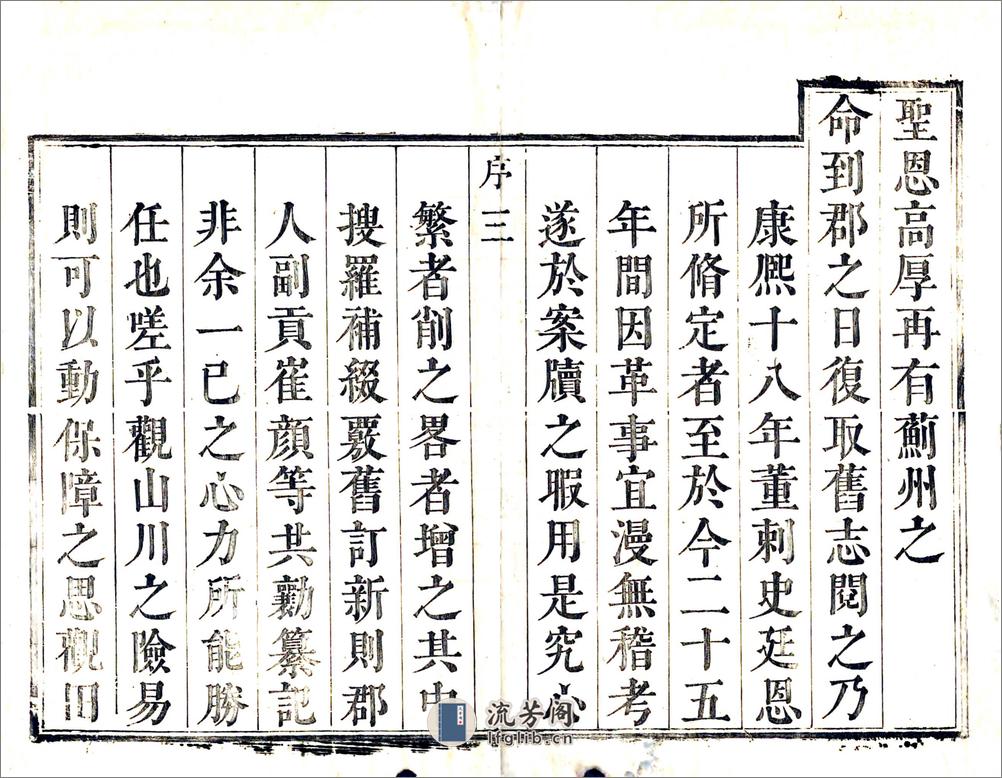 聖恩高厚再有薊州之
命到郡之日復取舊志閱之乃
康熙十八年董刺史廷恩
所脩定者至於今二十五
年間因革事宜漫無稽考
遂於案牘之暇用是究心
序 三
繁者削之畧者增之其中
搜羅補綴覈舊訂新則郡
人副貢崔顔等共勷纂記
非余一已之心力所能勝
任也嗟乎觀山川之險易
則可以動保障之思觀田
流芳阁
lfglib.cn